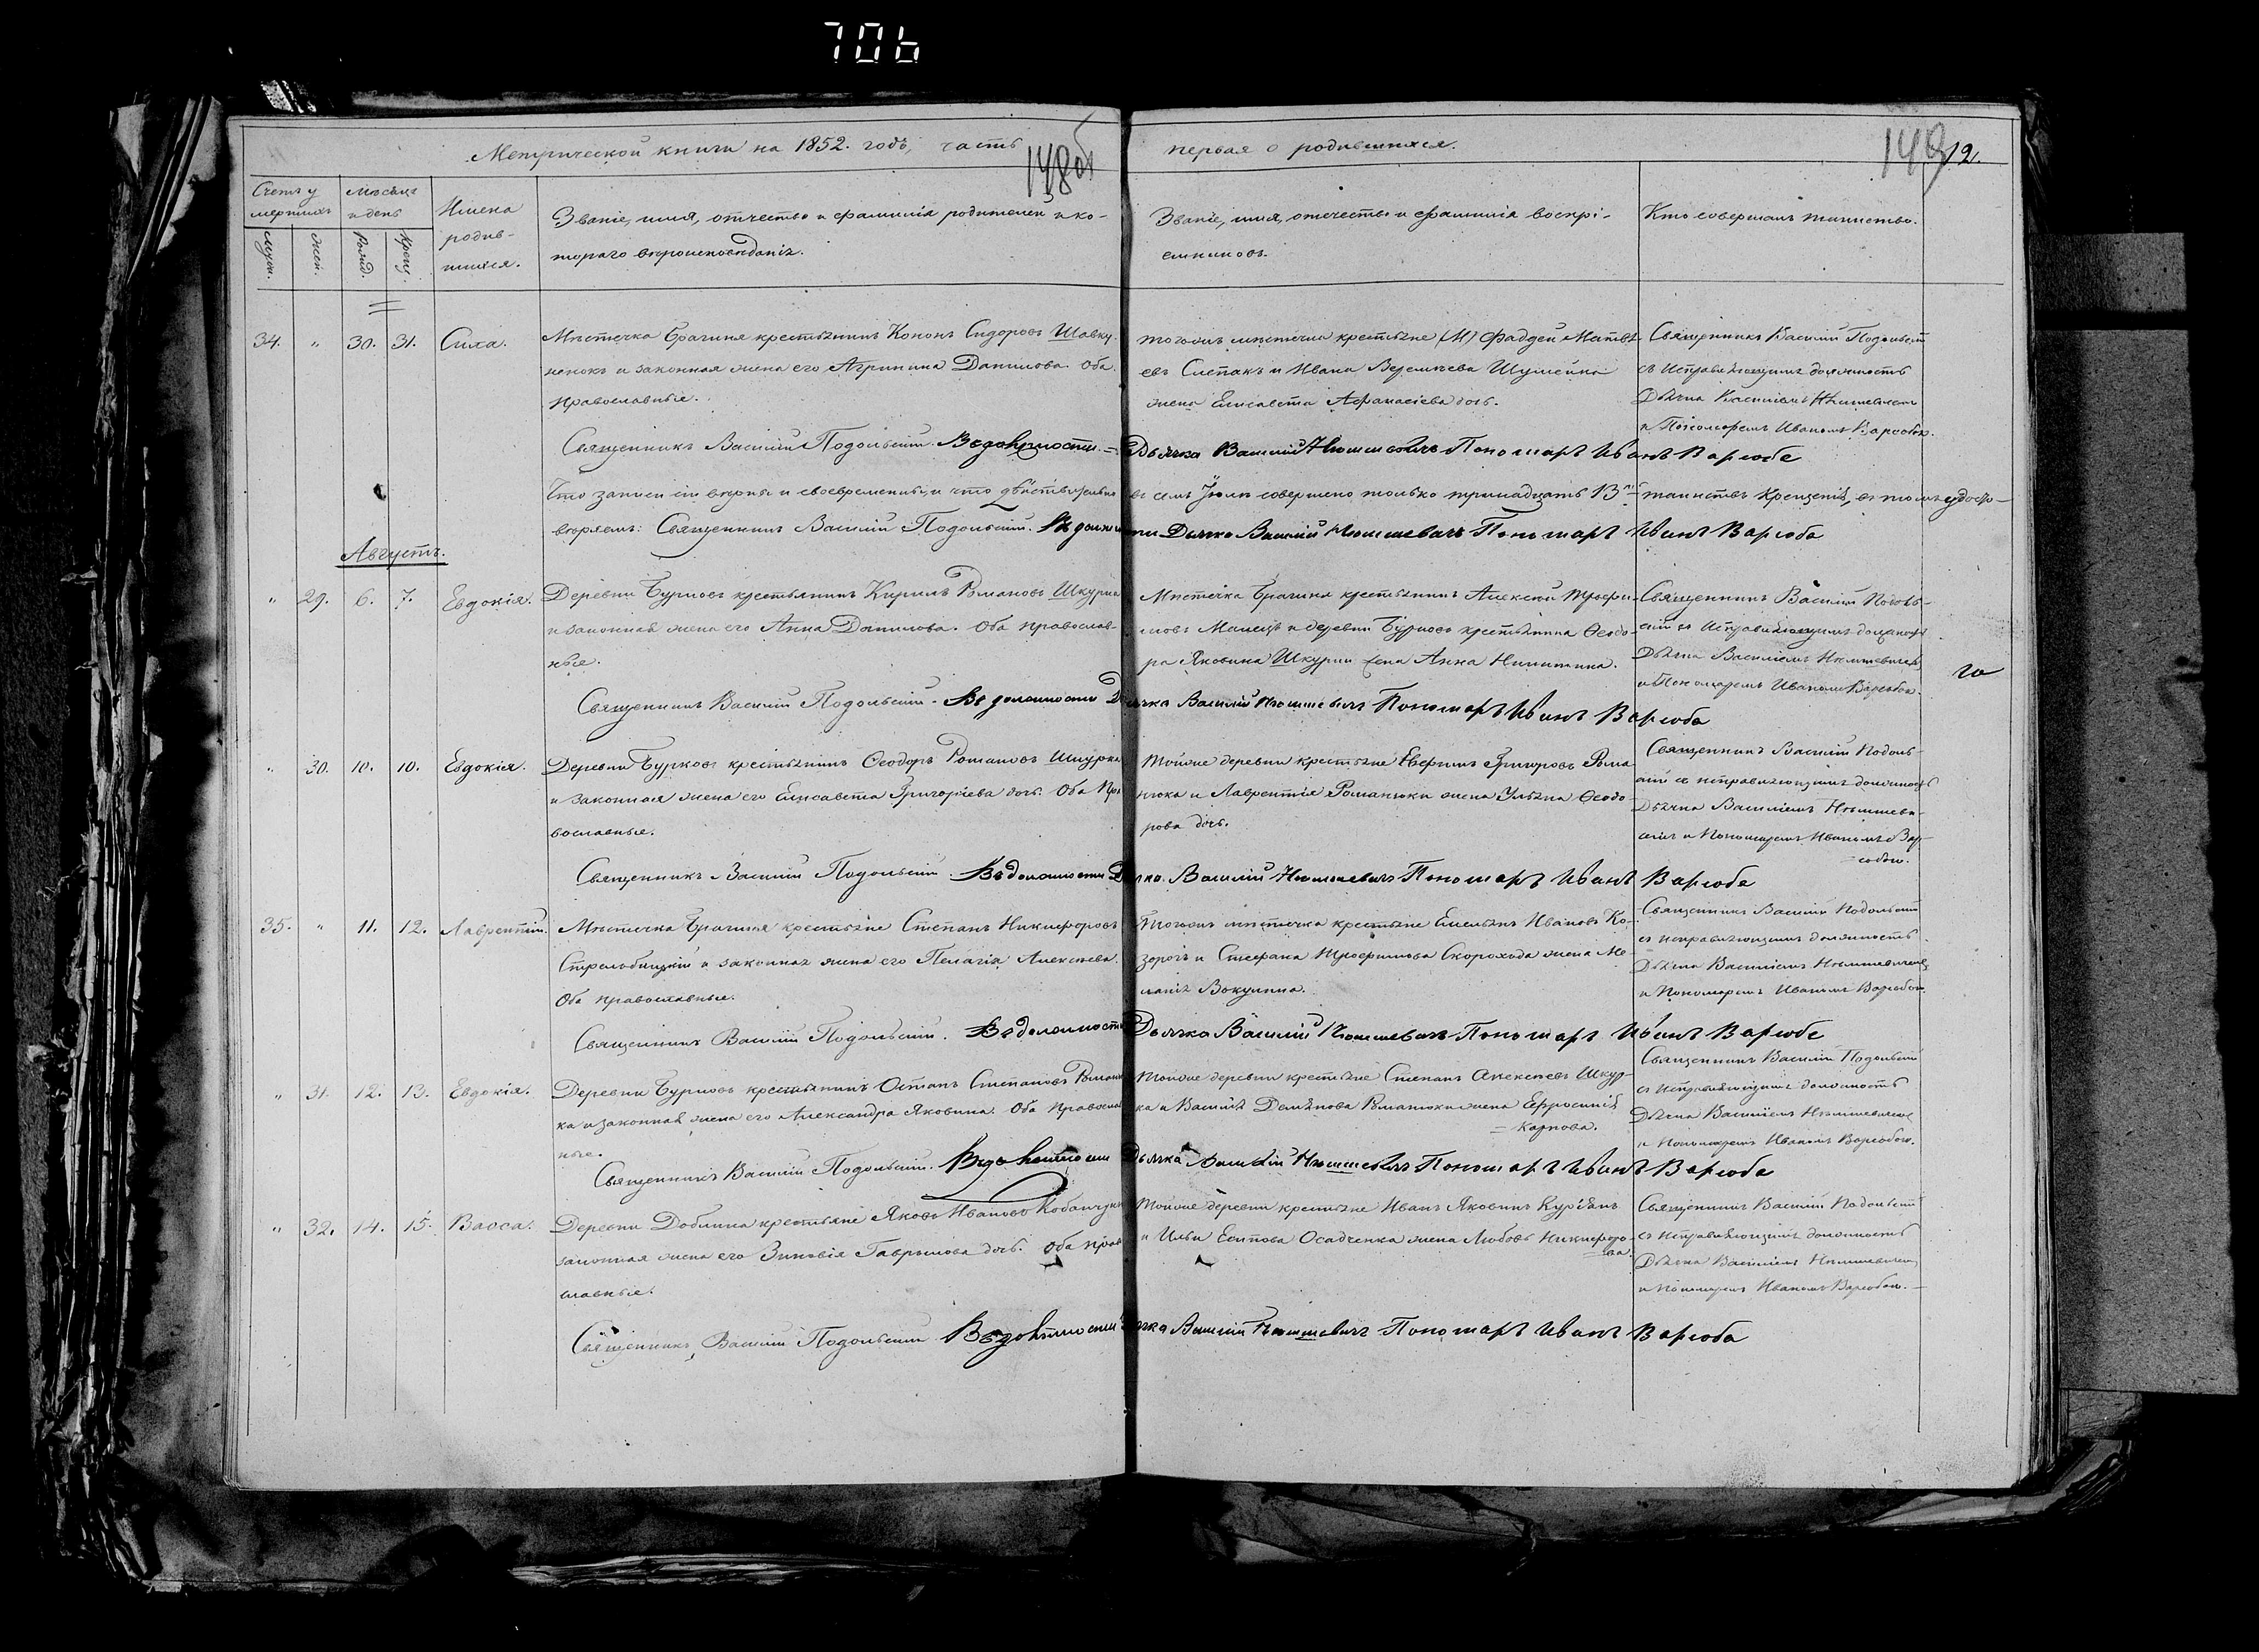 706
Метрической книги на 1852. годъ, часть
148об
первая о родившихся.
149
12.
Счетъ у
мершихъ
Мѣсяцъ
и день
Имена
родив-
шихся.
Званіе, имя, отчество и фамилія родителей и ко-
тораго вѣроисповѣданія.
Званіе, имя, отчество и фамилія воспрі-
емниковъ.
Кто совершалъ таинство.
муж.
жен.
Рожд.
Крещ.
34. " 30. 31. Сила.
Мѣстечка Брагиня крестьянинъ Кононъ Сидоровъ Шавку
ненокъ и законная жена его Агрипина Данилова. Оба
православные.
тогожъ мѣстечка крестьяне (М) Фаддей Матвѣ
евъ Слепакъ и Ивана Веремѣева Шумейка
жена Елисавета Афанасіева дочь.
Священникъ Василій Подольскій
съ исправляющимъ должность
Дьячка Василіемъ
и Пономаремъ Иваномъ Варсобою.
Священникъ Василій Подольскій. Въ должности Дьячка Василій Пономарь Иванъ Варсоба
Что записи сіи вѣрны и своевременны, и что дѣйствительно въ семъ Іюлѣ совершено только тринадцать 13ть таинствъ Крещенія, въ томъ удосто-
вѣряемъ: Священникъ Василій Подольскій. Въ должности Дьячка Василій Пономарь Иванъ Варсоба
Августъ.
" 29. 6. 7. Евдокія.
Деревни Бурковъ крестьянинъ Кирилъ Романовъ Шкурка
и законная жена его Анна Данилова. Оба православ-
ные.
Мѣстечка Брагиня крестьянинъ Алексѣй Трофи-
мовъ и деревни Бурковъ крестьянина Ѳеодо-
ра Яковина Шкурки жена Анна Никитина.
Священникъ Василій Подоль-
скій съ исправляющимъ должность
Дьячка Василіемъ
и Пономаремъ Иваномъ Варсобою.
Священникъ Василій Подольскій. Въ должности Дьячка Василій Пономарь Иванъ Варсоба
" 30. 10. 10. Евдокія.
Деревни Бурковъ крестьянинъ Ѳеодоръ Романовъ Шкурка
и законная жена его Елисавета Григоріева дочь. Оба пра
вославные.
Тойже деревни крестьяне Евфимъ Григоровъ Рома
нюка и Лаврентія Романюки жена Ульяна Ѳеодо
рова дочь.
Священникъ Василій Подоль-
скій съ исправляющимъ должность
Дьячка Василіемъ
и Пономаремъ Иваномъ Вар-
собою.
Священникъ Василій Подольскій. Въ должности Дьячка Василій Пономарь Иванъ Варсоба
35. " 11. 12. Лаврентій.
Мѣстечка Брагиня крестьяне Степанъ Никифоровъ
Стрельбицкій и законная жена его Пелагія Алексѣева.
Оба православные.
Тогожъ мѣстечка крестьяне Емельянъ Ивановъ Ко-
зорогъ и Стефана Трофимова Скорохода жена Ме-
ланія Вакулина.
Священникъ Василій Подольскій
съ исправляющимъ должность
Дьячка Василіемъ
и Пономаремъ Иваномъ Варсобою.
Священникъ Василій Подольскій. Въ должности Дьячка Василій Пономарь Иванъ Варсоба
" 31. 12. 13. Евдокія.
Деревни Бурковъ крестьянинъ Остапъ Степановъ Романю
ка и законная жена его Александра Яковина. Оба православ
ные.
Тойже деревни крестьяне Степанъ Алексѣевъ Шкур-
ка и Василія Демьянова Романюки жена Ефросинія
Карпова.
Священникъ Василій Подольскій
съ исправляющимъ должность
Дьячка Василіемъ
и Пономаремъ Иваномъ Варсобою.
Священникъ Василій Подольскій. Въ должности Дьячка Василій Пономарь Иванъ Варсоба
" 32. 14. 15. Васса.
Деревни Доблина крестьяне Яковъ Ивановъ
законная жена его Зиновія Гаврылова дочь. Оба право
славные.
Тойже деревни крестьяне Иванъ Яковинъ Курьянъ
и Ильи Есипова Осадченка жена Любовь Никифоро
ва.
Священникъ Василій Подольскій
съ исправляющимъ должность
Дьячка Василіемъ
и Пономаремъ Иваномъ Варсобою.
Священникъ Василій Подольскій Въ должности Дьячка Василій Пономарь Иванъ Варсоба